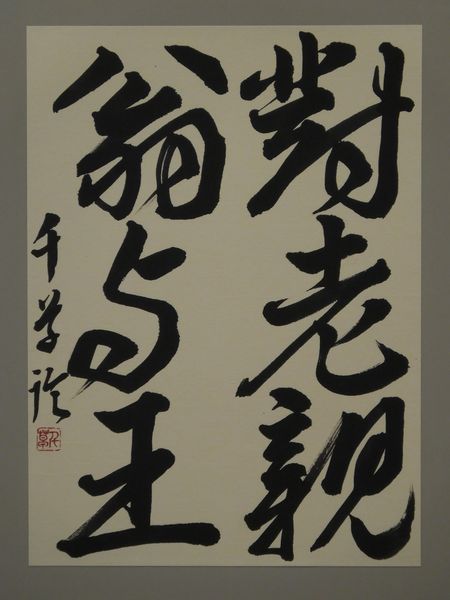 對老親
翁与王
千